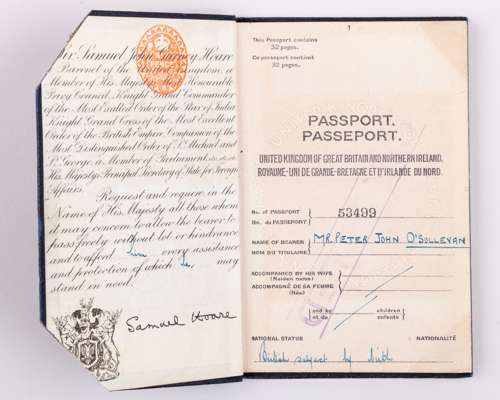 Sir Samuel John Gurney Hoare
Baronet of the United Kingdom, a
Member of His Majesty's Most Honourable
Privy Council, Knight Grand Commander
of the Most Exalted Order of the Star of India
Knight Grand Cross of the Most Excellent
Order of the British Empire, Companion of the
Most Distinguished Order of St. Michael and
St. George, a Member of Parliament, etc. etc. etc.
His Majesty's Principal Secretary of State for Foreign
Affairs.
Request and require in the
Name of His Majesty all those whom
it may concern to allow the bearer to
pass freely without let or hindrance
and to afford him every assistance
and protection of which he may
stand in need.
Samuel Hoare
1
This Passport contains
32 pages.
Ce passeport contient
32 pages.
PASSPORT.
PASSEPORT.
UNITED KINGDOM OF GREAT BRITAIN AND NORTHERN IRELAND.
ROYAUME-UNI DE GRANDE-BRETAGNE ET D'IRLANDE DU NORD.
No. of PASSPORT
No. du PASSEPORT
53499
NAME OF BEARER
NOM DU TITULAIRE
MR. PETER JOHN O'SULLEVAN
ACCOMPANIED BY HIS WIFE
(Maiden name)
ACCOMPAGNÉ DE SA FEMME
(Née)
and by
et de
children
enfants
NATIONAL STATUS NATIONALITÉ
British subject by birth